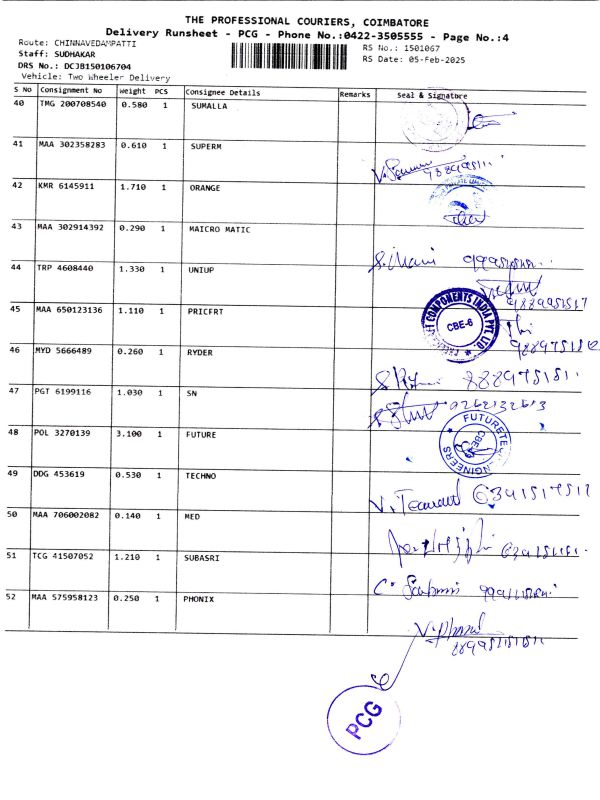 THE PROFESSIONAL COURIERS, COIMBATORE
Delivery Runsheet - PCG - Phone No.:0422-3505555 - Page No.:4
Route: CHINNAVEDAMPATTI
RS No.: 1501067
Staff: SUDHAKAR
RS Date: 05-Feb-2025
DRS No.: DCJB150106704
Vehicle: Two Wheeler Delivery
S No Consignment No Weight PCS Consignee Details Remarks Seal & Signature
40 TMG 200708540 0.580 1 SUMALLA
41 MAA 302358283 0.610 1 SUPERM
42 KMR 6145911 1.710 1 ORANGE
43 MAA 302914392 0.290 1 MAICRO MATIC
44 TRP 4608440 1.330 1 UNIUP
45 MAA 650123136 1.110 1 PRICFRT
COMPONENTS INDIA PVT. LTD
CBE-6
46 MYD 5666489 0.260 1 RYDER
47 PGT 6199116 1.030 1 SN
48 POL 3270139 3.100 1 FUTURE
49 DDG 453619 0.530 1 TECHNO
50 MAA 706002082 0.140 1 MED
51 TCG 41507052 1.210 1 SUBASRI
52 MAA 575958123 0.250 1 PHONIX
PCG